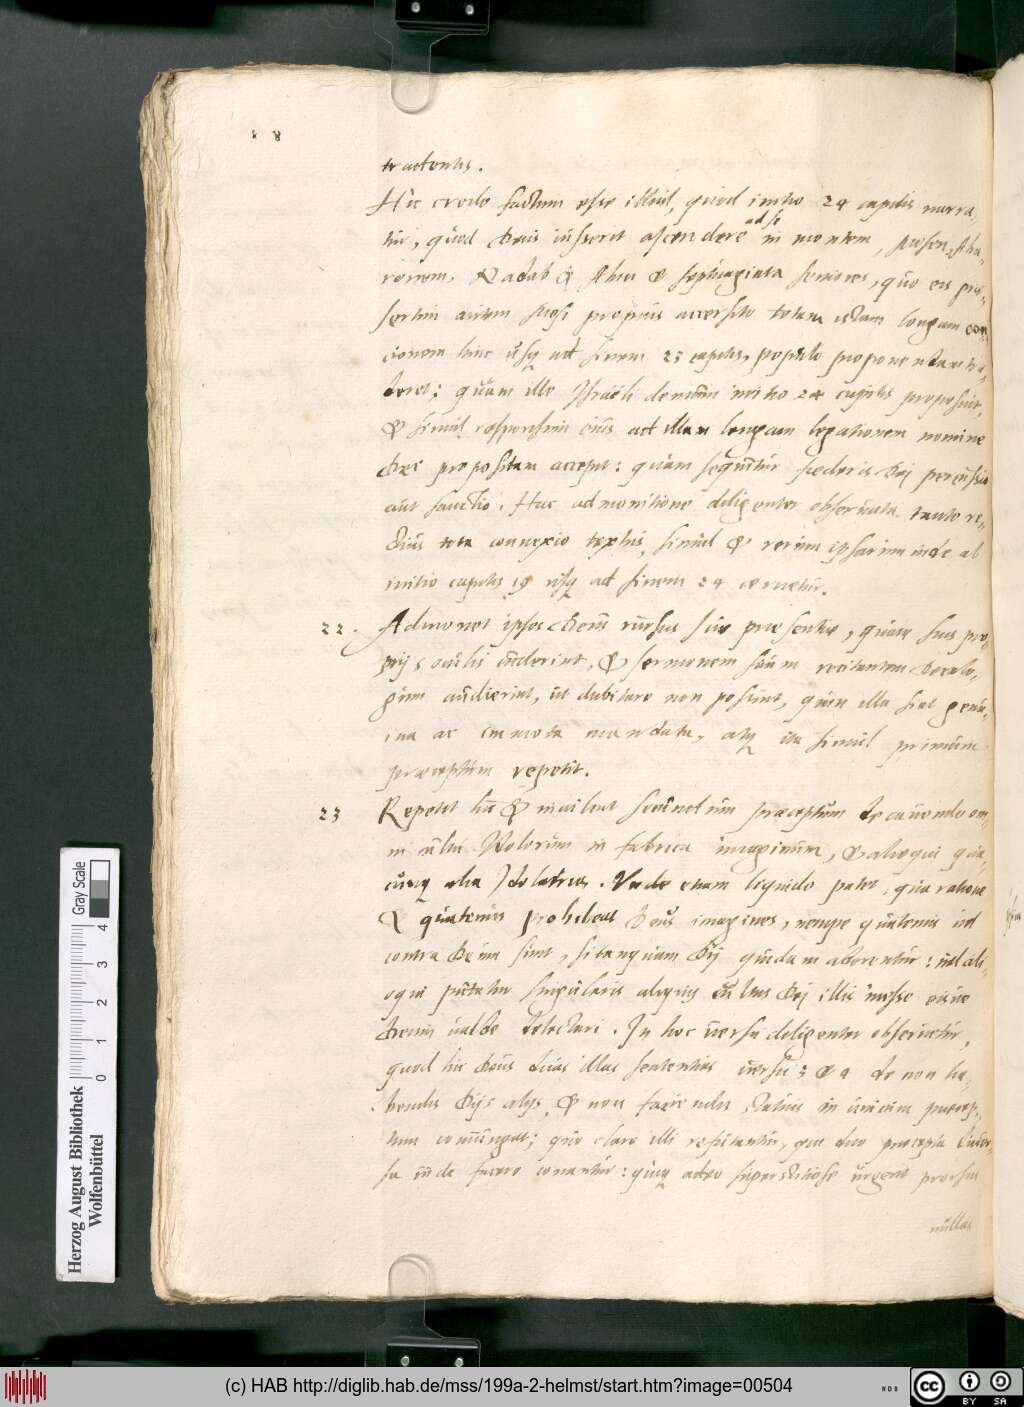 tractentis.
Hic credo factum esse illud, quod initio 24 capitis narra-
tur, quod Deus iusserit ascendere ad se in montem, Mosen, Aha-
ronem, Nadab & Abiu & septuaginta seniores, quo eis prae-
sertim autem Mosi propius accersito totam istam longam con-
cionem hinc usq ad finem 23 capitis, populo proponendam tra-
deret: quam ille Israeli demum initio 24 capitis proposuit,
& simul responsum eius ad illam longam legationem nomine
Dei propositam accepit: quam sequitur foederis Dei percussio
aut sanctio. Hac admonitione diligenter observata tanto re-
ctius tota connexio textus, simul & rerum ipsarum inde ab
initio capitis 19 usq ad finem 24 cernetur.
22. Admonet ipsos Deus rursus suae praesentiae, quam suis pro-
prijs oculis viderint, & sermonem suum recitantem Decalo-
gum audierint, ut dubitare non possint, quin illa sint genu-
ina ac immota mandata, atq ita simul primum
praeceptum repetit.
23 Repetit & inculcat praeceptum de cavendo om-
ni cultu in fabrica imaginum, & alioqui qua-
cunq alia Idolatria. Unde etiam liquido patet, qua ratione
& quatenus prohibeat Deus imagines, nempe quatenus vel
contra Deum sint, si tanquam Dij quidam adorentur: vel ali-
oqui putatur singularis aliquis cultus Dei illis inesse eisve
Deum valde delectari. In hoc versu diligenter observetur,
quod hic Deus duas illas sententias versu 3 & 4 de non ha-
bendis Dijs alijs, & non faciendis statuis in unicum praecep-
tum coniungat; quo clare illi refutantur, qui duo praecepta diver-
sa inde facere conantur: quiq adeo superstitiose urgent prorsus
nullas
Herzog August Bibliothek
Wolfenbüttel
0 1 2 3 4
Gray Scale
(c) HAB http://diglib.hab.de/mss/199a-2-helmst/start.htm?image=00504
cc
BY SA